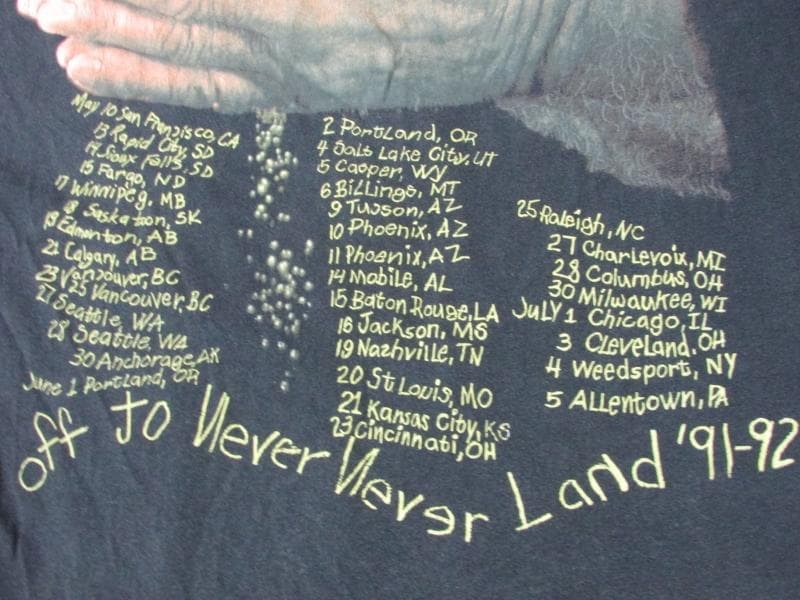 May 10 San Franzisco, CA
13 Rapid City, SD
14 Sioux Falls, SD
15 Fargo, ND
17 Winnipeg, MB
18 Saskatoon, SK
19 Edmonton, AB
21 Calgary, AB
23 Vancouver, BC
25 Vancouver, BC
27 Seattle, WA
28 Seattle, WA
30 Anchorage, AK
June 1 Portland, OR
2 Portland, OR
4 Salt Lake City, UT
5 Casper, WY
6 Billings, MT
9 Tuscon, AZ
10 Phoenix, AZ
11 Phoenix, AZ
14 Mobile, AL
15 Baton Rouge, LA
16 Jackson, MS
19 Nazhville, TN
20 St Louis, MO
21 Kansas City, KS
23 Cincinnati, OH
25 Raleigh, NC
27 Charlevoix, MI
28 Columbus, OH
30 Milwaukee, WI
JULY 1 Chicago, IL
3 Cleveland, OH
4 Weedsport, NY
5 Allentown, PA
off to Never Never Land '91-92